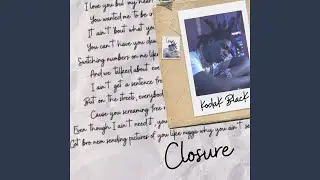 I love you but my hear
You wanted me to be a
It ain't bout what you
You can't have you cha
Switching numbers on me like
And we talked about ev
I ain't get a sentence fr
But on the streets, everybod
Cause you screaming free m
Even though I ain't need it, you
Got bro nem sending pictures of you like nigga why you ain't se
Kodak Black
Closure